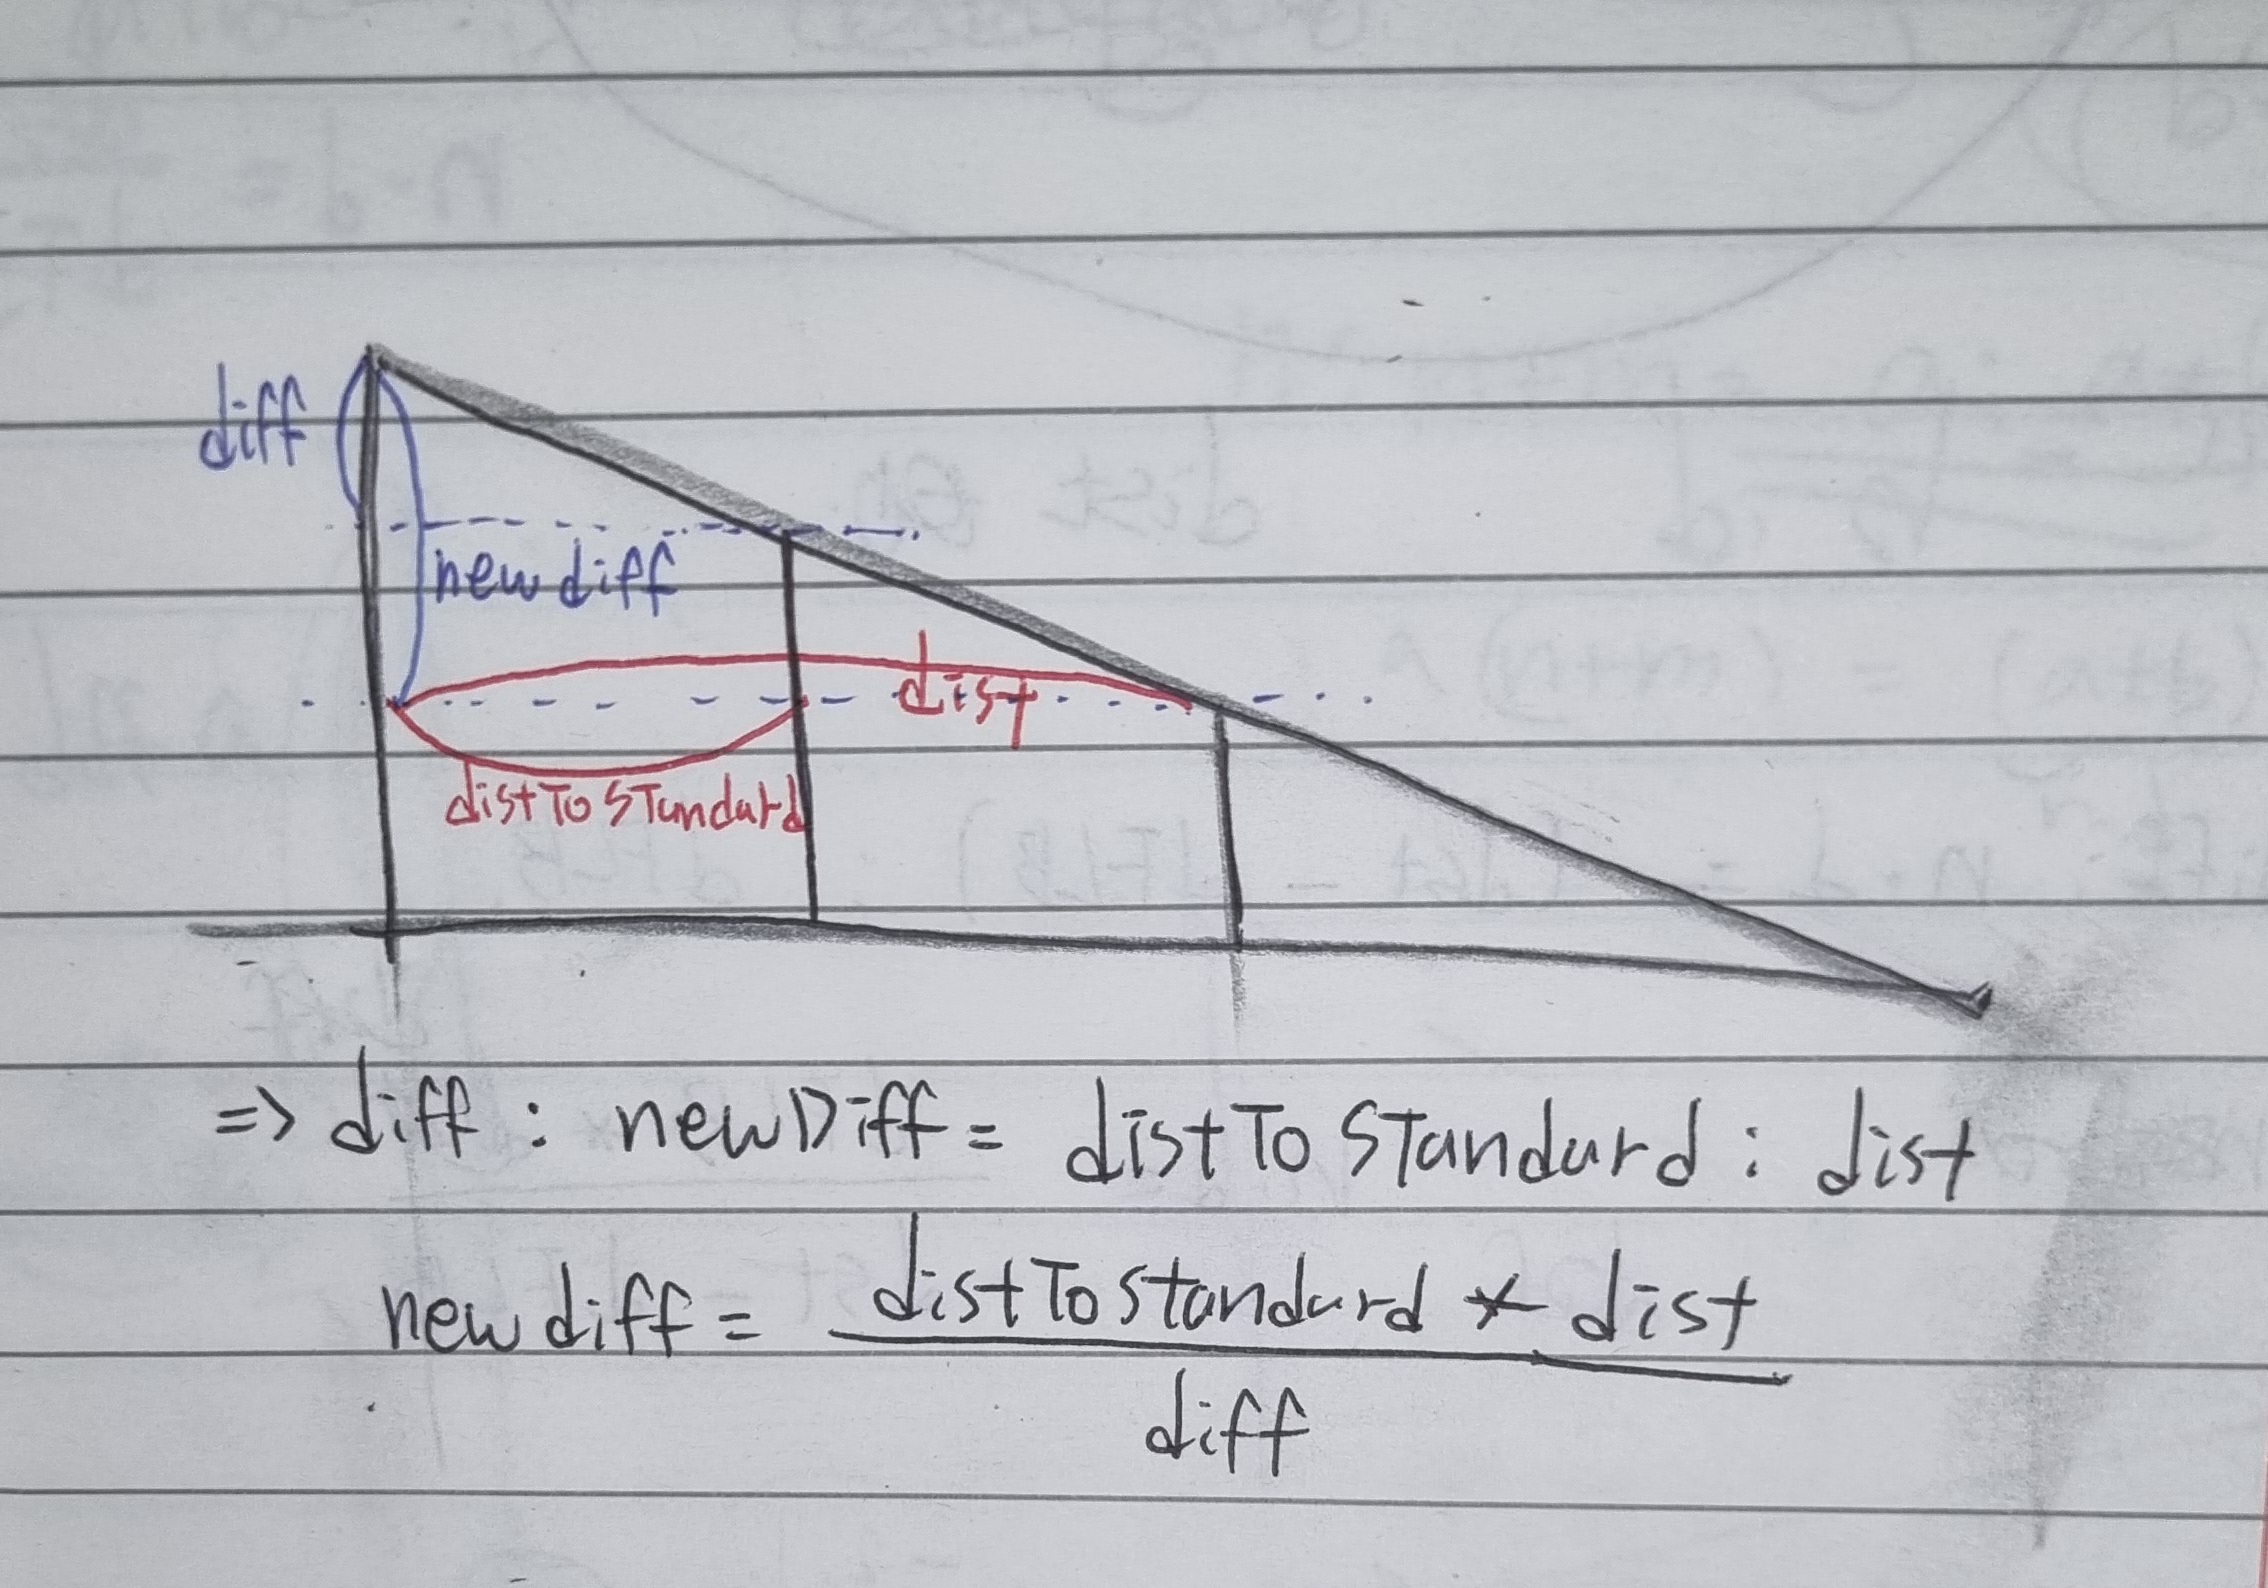 diff
new diff
dist
distToStandard
=> diff : newDiff = distToStandard : dist
new diff = distTostandard * dist
diff